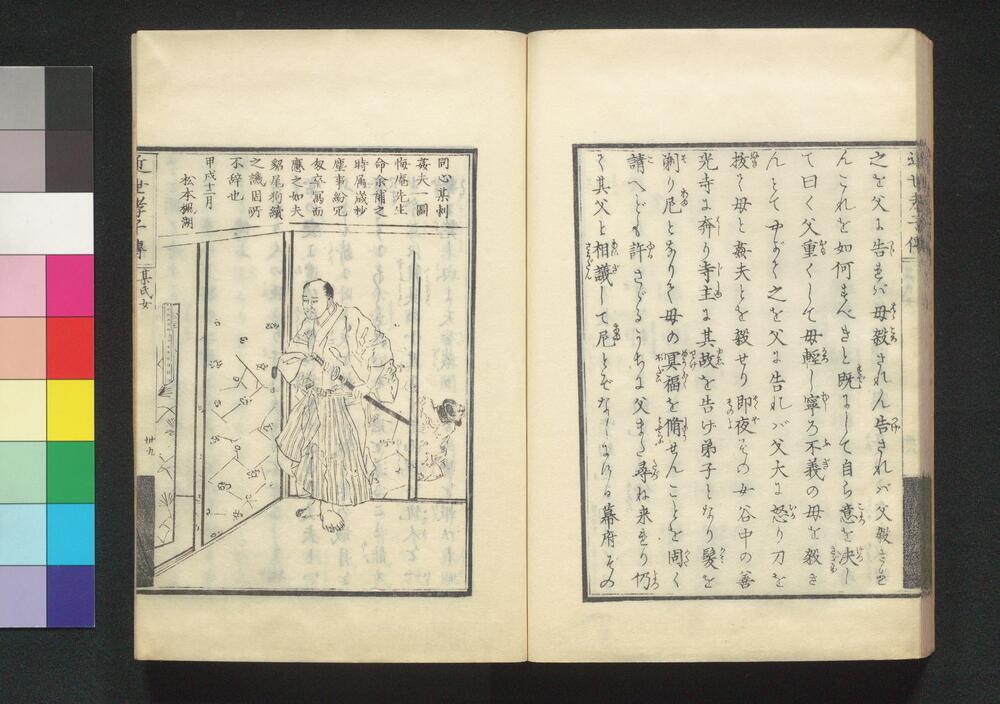 之を父に告されバ母殺されん告されバ父殺さる
んこれを如何すべきと既にして自ら意を决し
て曰く父重くして母輕し寧ろ不義の母を殺さ
んとて中がく之を父に告れバ父大に怒り刀を
拔て母と姦夫とを殺せり即夜その女谷中の善
光寺に奔り寺主に其故を告げ弟子となり髪を
剃り尼となりて母の冥福を脩せんことを固く
請へども許さゞるうちに父また尋ね来より乃
て其父と相議して尼とぞなしにける幕府その
同心某刺
姦夫一圖
悔堂先生
命余補之
時属歳杪
塵事紛冗
匆卒寫而
應之如夫
貂尾狗續
之譏固所
不辞也
甲戌十二月
松本楓湖
近世孝子傳
某氏女
卅九